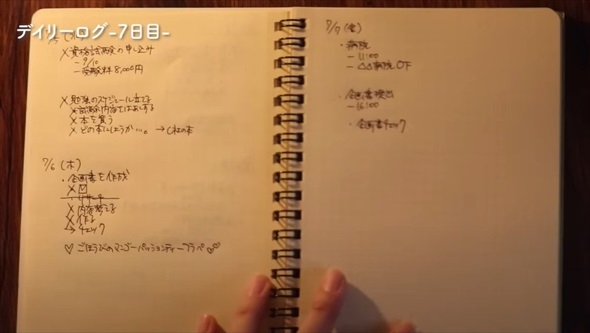 デイリーログ-7日目-
× 資格試験の申し込み
- 9/10
- 受験料 8,000円
× 勉強のスケジュール立てる
× 本を買う
× どの本にしようか…。→ C社の本
7/6 (木)
・企画書を作成
× 内容考える
× 作る
→ チェック
♡ ごほうびのマンゴーパッションティーフラペ ♡
7/7 (金)
・病院
- 11:00
- △△病院 〇F
・企画書提出
- 16:00
・企画書チェック